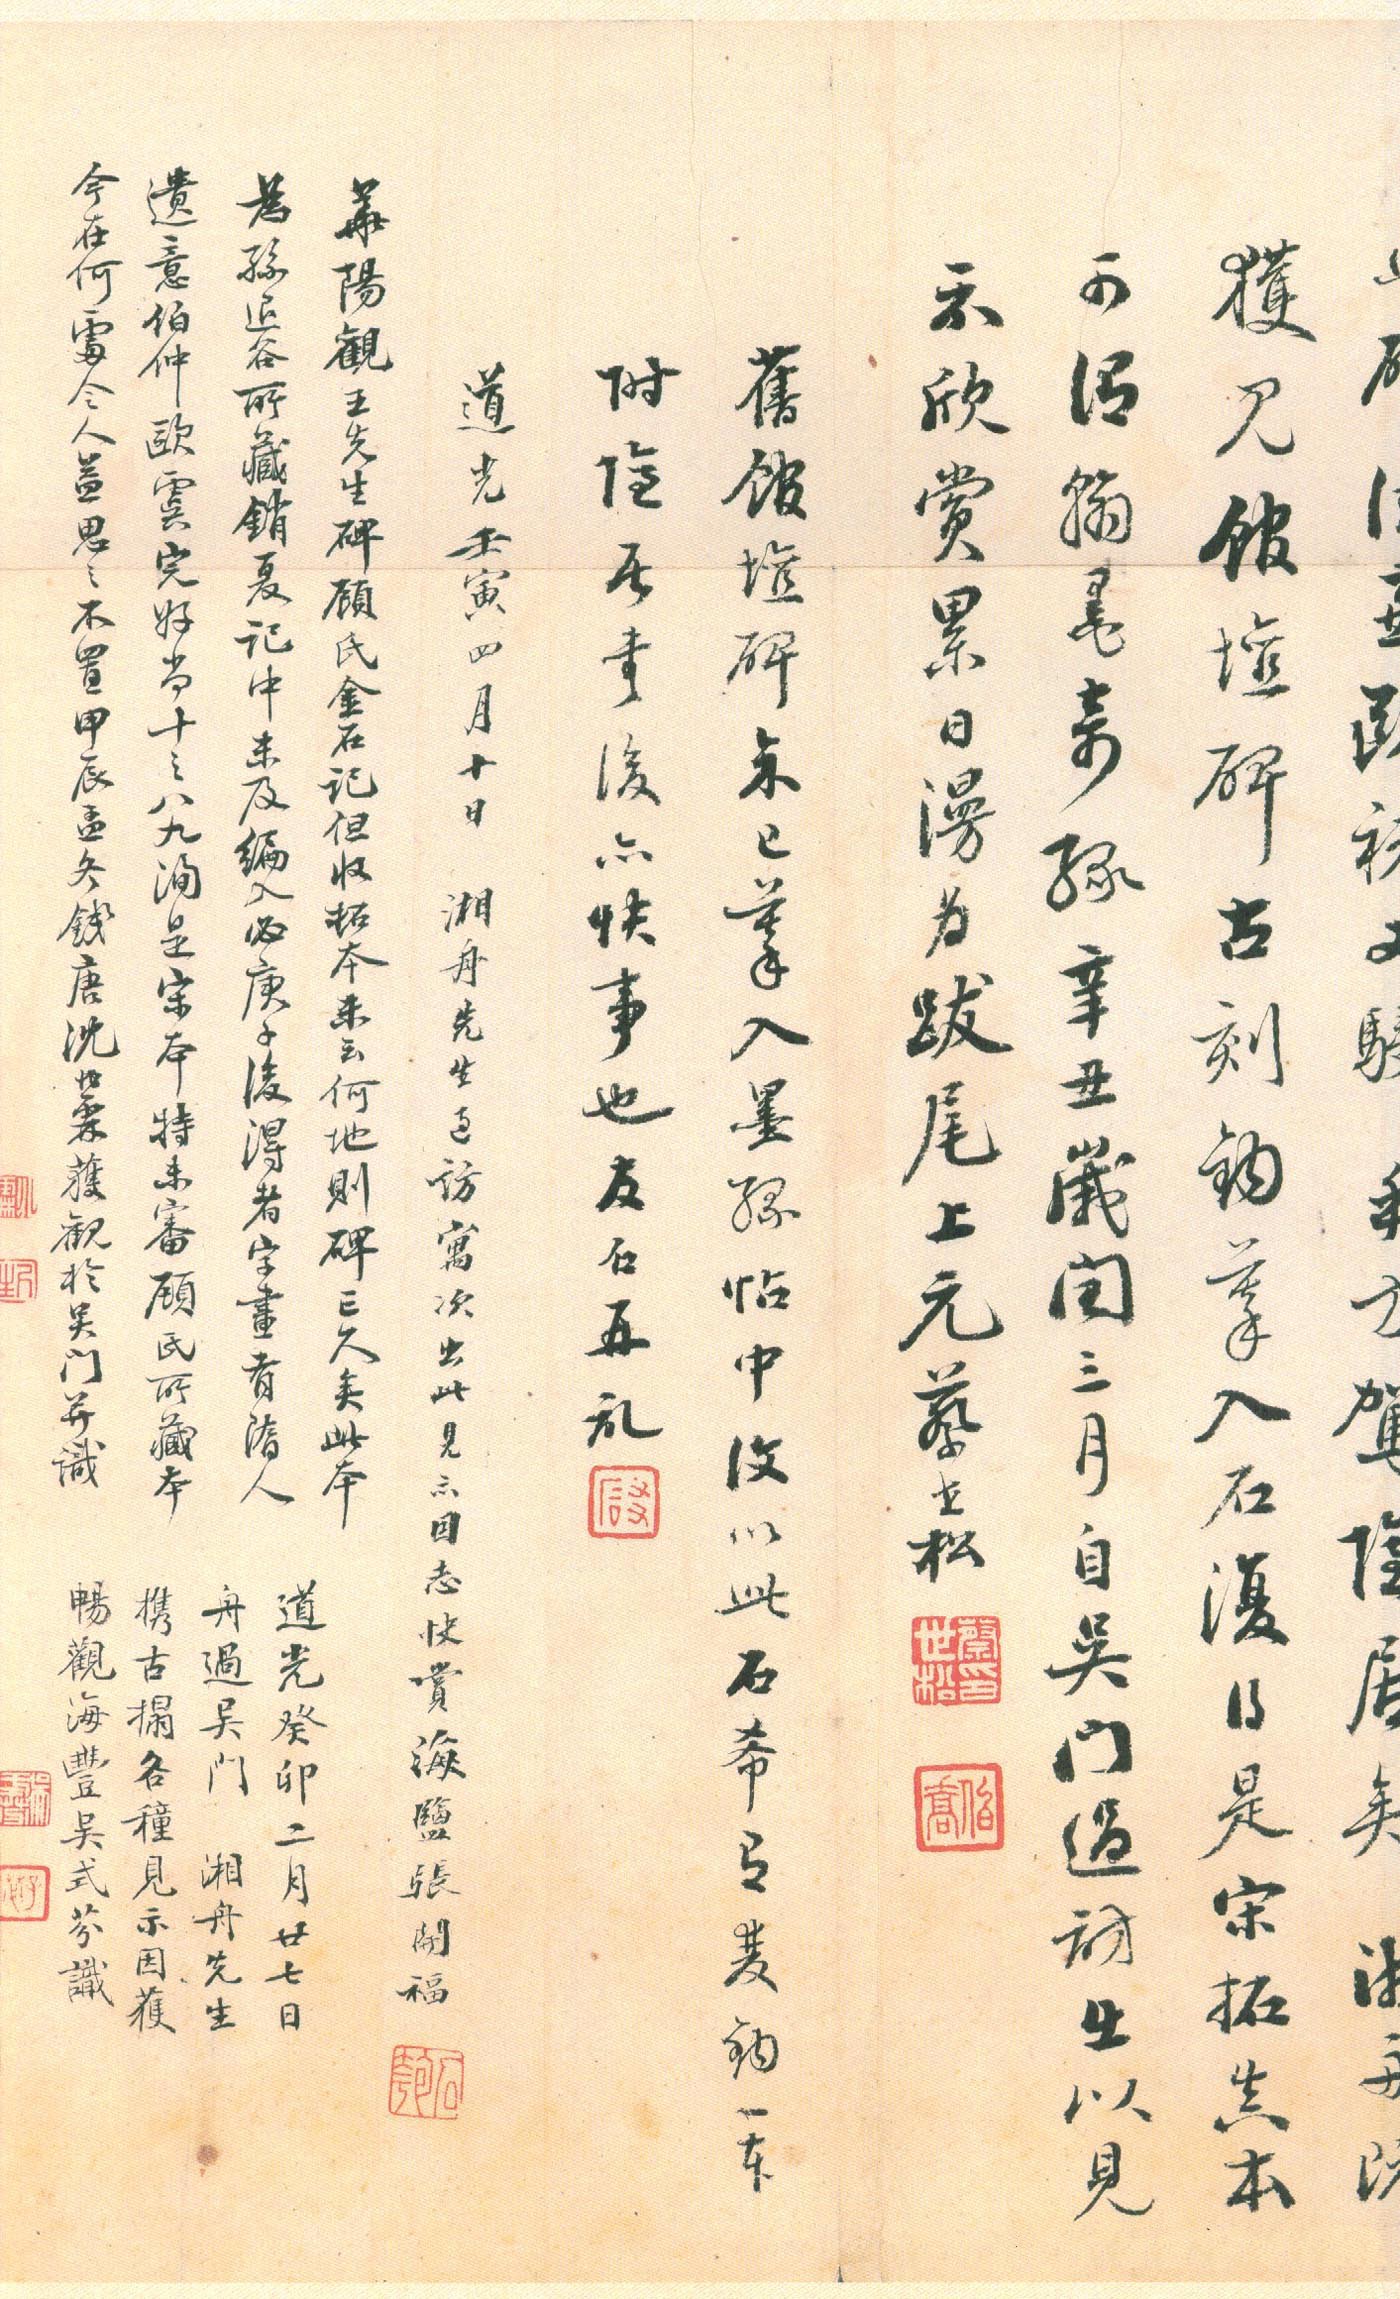 獲見館壇碑古刻鈎摹入石復得是宋拓真本
可謂翰墨奇緣辛丑歲閏三月自吳門過訪出以見
示欣賞累日漫為跋尾上元蔡世松
蔡世松印
伯喬
舊館壇碑余已摹入墨緣帖中後以此石希有雙鈎一本
附隱居書後亦快事也友石再記
道光壬寅四月十日 湘舟先生過訪寓次出此見示因志快賞海鹽張開福
石匏
華陽觀王先生碑顧氏金石記但收拓本未云何地則碑已久矣此本
為孫退谷所藏銷夏記中未及編入必庚子後得者字畫有隋人
遺意伯仲歐虞完好尚十之八九洵是宋本特未審顧氏所藏本
今在何處令人益思之不置甲辰孟冬錢唐沈 獲觀於吳門並識
道光癸卯二月廿七日
舟過吳門 湘舟先生
携古搨各種見示因獲
暢觀海豐吳式芬識